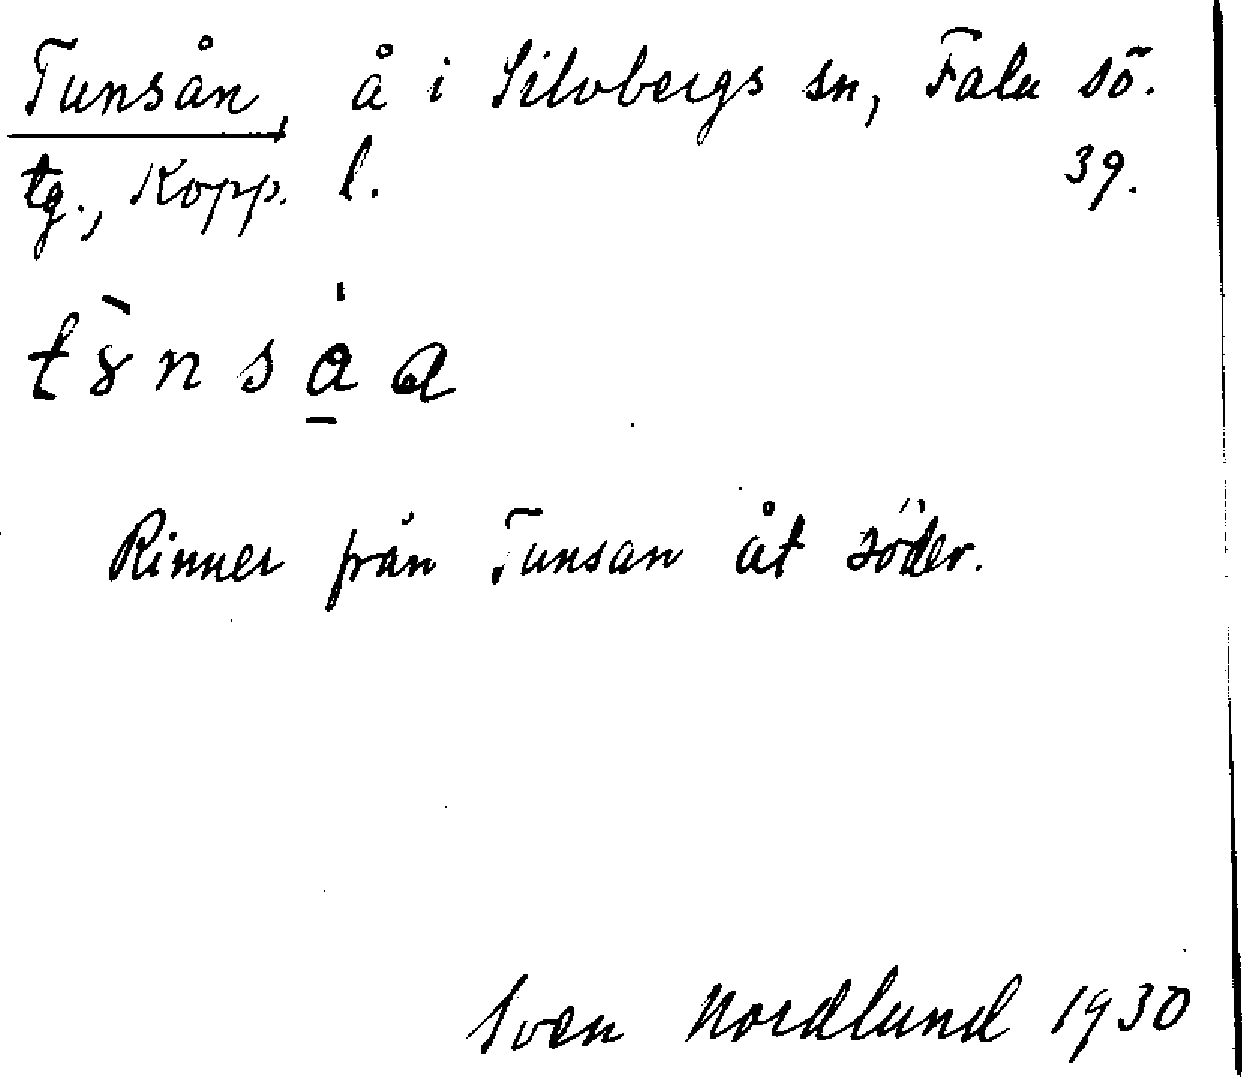 Tunsån, å i Silvbergs sn, Falu sö.
tg., Kopp. l. 39.
Rinner från Tunsan åt söder.
Sven Nordlund 1930